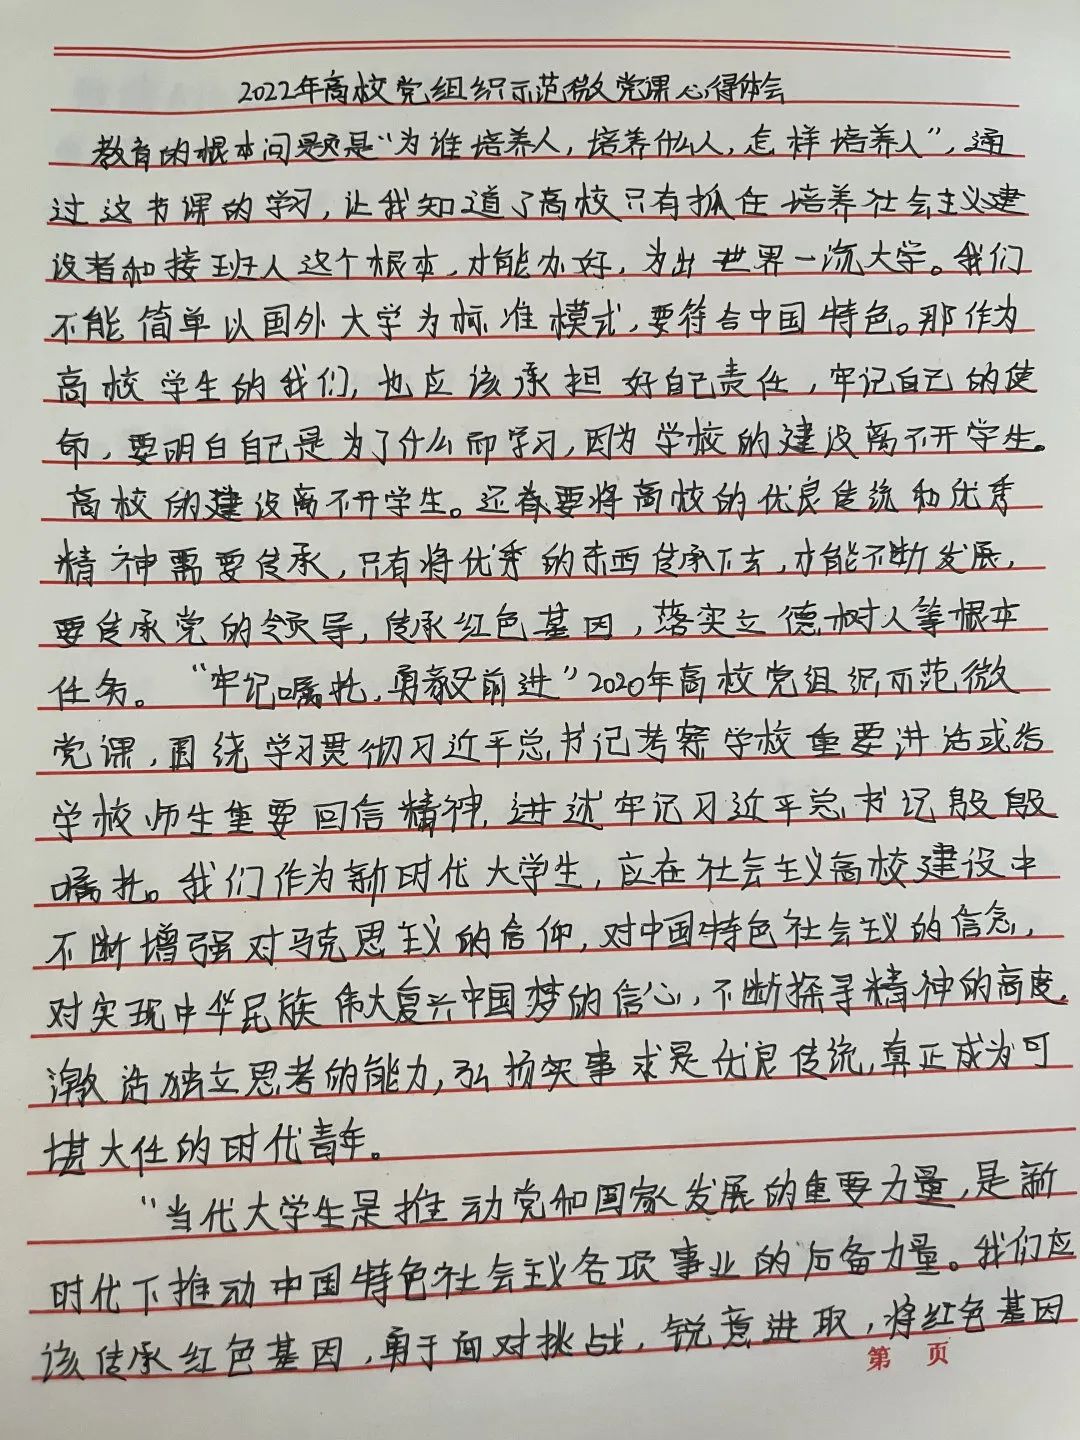 2022年高校党组织示范微党课心得体会
教育的根本问题是“为谁培养人，培养什么人，怎样培养人”，通
过这节课的学习，让我知道了高校只有抓住培养社会主义建
设者和接班人这个根本，才能办好，为出世界一流大学。我们
不能简单以国外大学为标准模式，要符合中国特色。那作为
高校学生的我们，也应该承担好自己责任，牢记自己的使
命，要明白自己是为了什么而学习，因为学校的建设离不开学生。
高校的建设离不开学生。还有要将高校的优良传统和优秀
精神需要传承，只有将优秀的东西传承下去，才能不断发展，
要传承党的领导，传承红色基因，落实立德树人等根本
任务。“牢记嘱托，勇毅前进”2020年高校党组织示范微
党课，围绕学习贯彻习近平总书记考察学校重要讲话或给
学校师生重要回信精神，讲述牢记习近平总书记殷殷
嘱托。我们作为新时代大学生，应在社会主义高校建设中
不断增强对马克思主义的信仰，对中国特色社会主义的信念，
对实现中华民族伟大复兴中国梦的信心，不断探寻精神的高度，
激活独立思考的能力，弘扬实事求是优良传统，真正成为可
堪大任的时代青年。
“当代大学生是推动党和国家发展的重要力量，是新
时代下推动中国特色社会主义各项事业的后备力量。我们应
该传承红色基因，勇于面对挑战，锐意进取，将红色基因
第 页